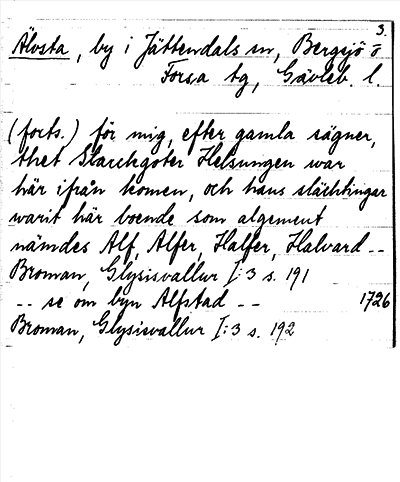 3.
Älvsta, by i Jättendals sn, Bergsjö o
Forsa tg, Gävleb. l.
(forts.) för mig, efter gamla sägner,
thet Starchoter Helsungen war
här ifrån komen, och hans slächtingar
warit här boende som algement
nämdes Alf, Alfer, Halfer, Halvard --
Broman, Glysisvallur I:3 s. 191
-- se om byn Alfstad -- 1726
Broman, Glysisvallur I:3 s. 192